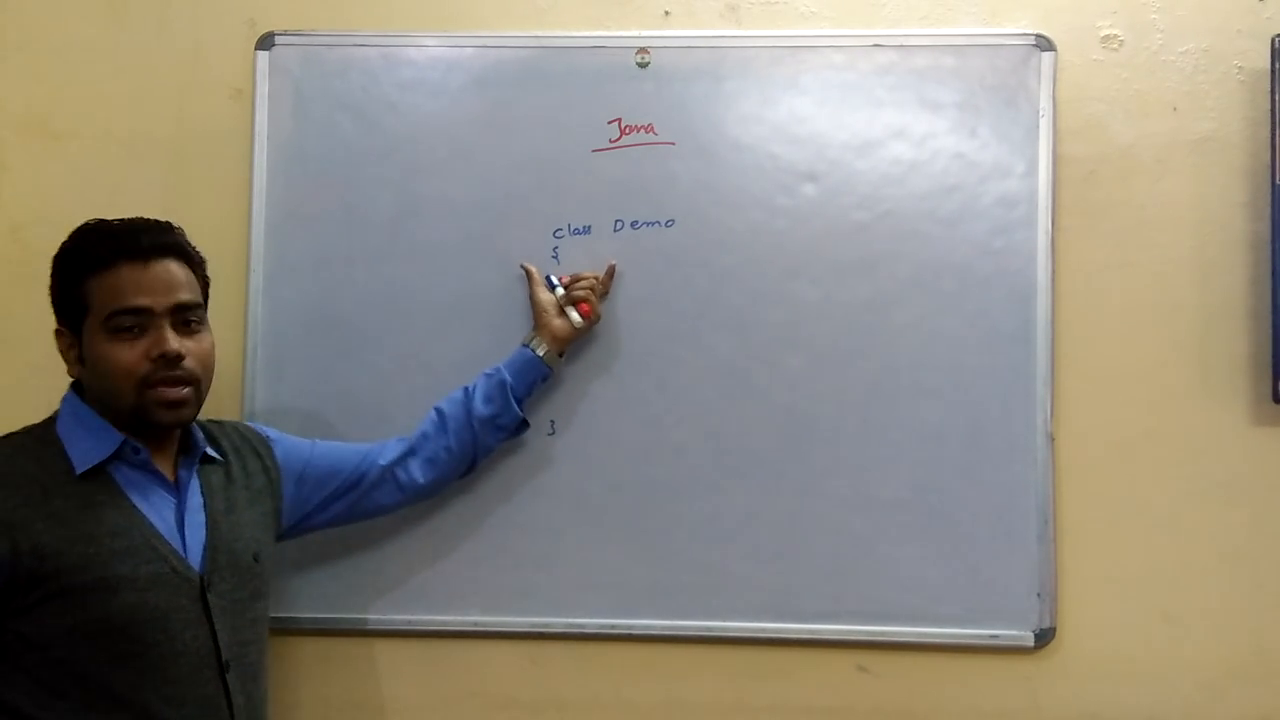 Java
class Demo
{
}